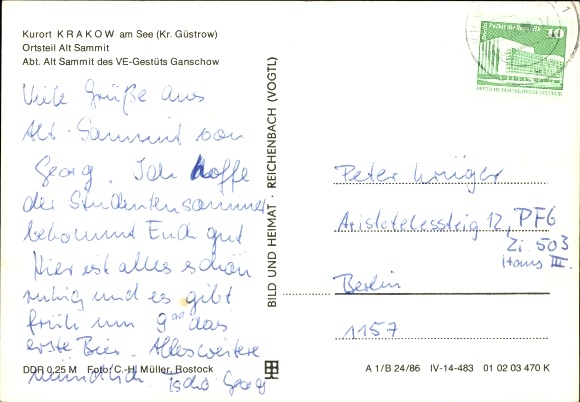 Kurort KRAKOW am See (Kr. Güstrow)
Ortsteil Alt Sammit
Abt. Alt Sammit des VE-Gestüts Ganschow
Viele Grüße aus
Alt-Sammit von
Georg. Ich hoffe
der Studentensommer
bekommt Euch gut
Hier ist alles schön
ruhig und es gibt
früh um 9⁰⁰ das
erste Bier. Alles weitere
mündlich. Georg
DDR 0,25 M Foto: C.-H. Müller, Rostock
BILD UND HEIMAT · REICHENBACH (VOGTL)
Palast der Republik 10
DEUTSCHE DEMOKRATISCHE REPUBLIK
Peter Krüger
Aristotelessteig 12, PF6
Zi. 503
Haus III.
Berlin
1157
A 1/B 24/86 IV-14-483 01 02 03 470 K